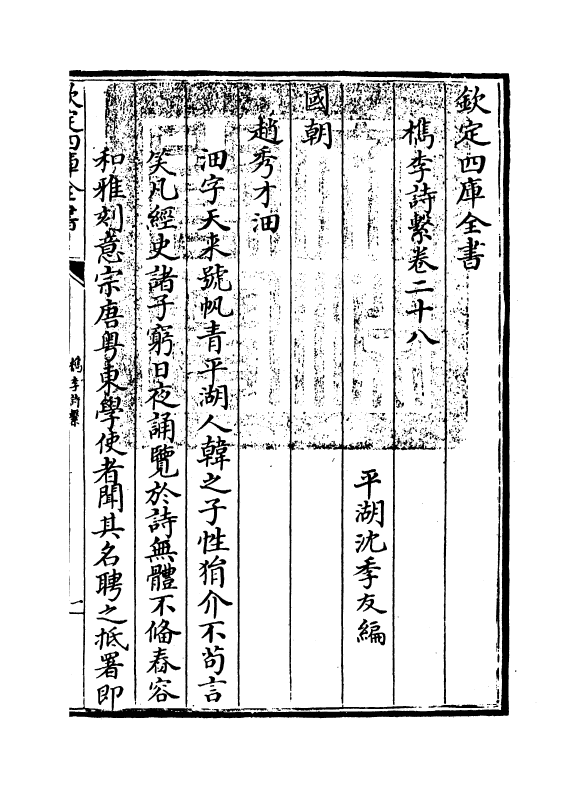 欽定四庫全書
檇李詩繫卷二十八
平湖沈季友編
國朝
趙秀才沺
沺字天來號帆青平湖人韓之子性狷介不茍言
笑凡經史諸子窮日夜誦覽於詩無體不備舂容
和雅刻意宗唐粤東學使者聞其名聘之抵署即
欽定四庫全書
檇李詩繫